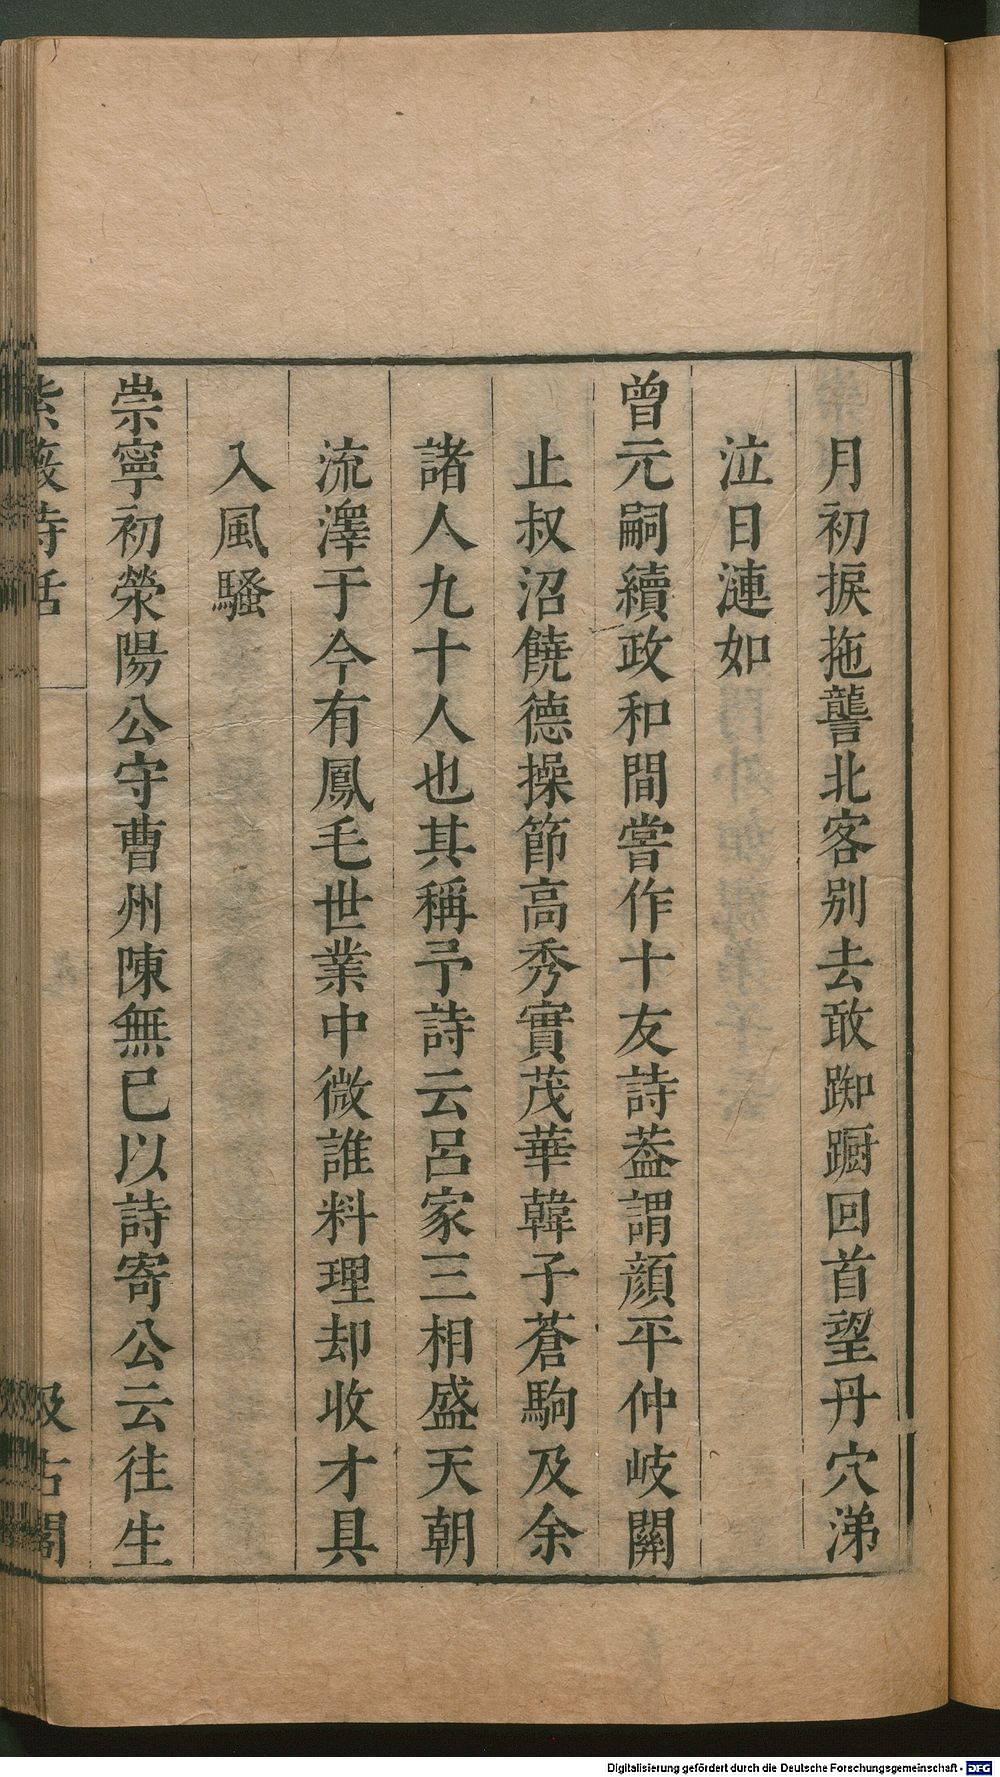 月初捩拖讋北客別去敢踟蹰回首望丹穴涕
泣日漣如
曾元嗣續政和間嘗作十友詩葢謂顔平仲岐關
止叔沼饒德操節高秀實茂華韓子蒼駒及余
諸人九十人也其稱予詩云呂家三相盛天朝
流澤于今有鳳毛世業中微誰料理却收才具
入風騷
崇寧初滎陽公守曹州陳無已以詩寄公云往生
紫薇詩話
汲古閣
Digitalisierung gefördert durch die Deutsche Forschungsgemeinschaft - DFG